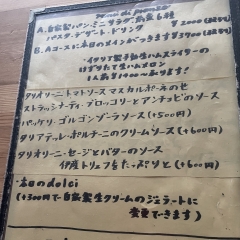 Menu di pranzo
A. 自家製パン・ミニサラダ・前菜6種
パスタ・デザート・ドリンク ¥2000(税別)
B. Aコースに本日のメインがつきます ¥3900(税別)
・イタリア製手動生ハムスライサーの
けずりたて生ハムメロン
1人前 ¥1000〜承ります!
タリオリーニ・トマトソース マスカルポーネのせ
ストラッシナーティ・ブロッコリーとアンチョビのソース
パッケリ・ゴルゴンゾーラソース(+500円)
タリアテッレ・ポルチーニのクリームソース(+600円)
タリオリーニ・セージとバターのソース
伊産トリュフをたっぷりと(+600円)
・本日のdolci
(+300円で自家製生クリームのジェラートに
変更できます)